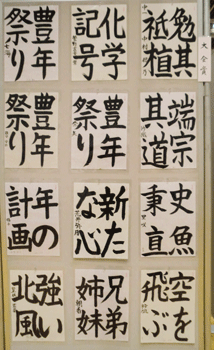 勉其
祗植
化学
記号
豊年
祭り
端宗
其道
豊年
祭り
豊年
祭り
史魚
秉直
新た
な心
年の
計画
空を
飛ぶ
兄弟
姉妹
強い
北風